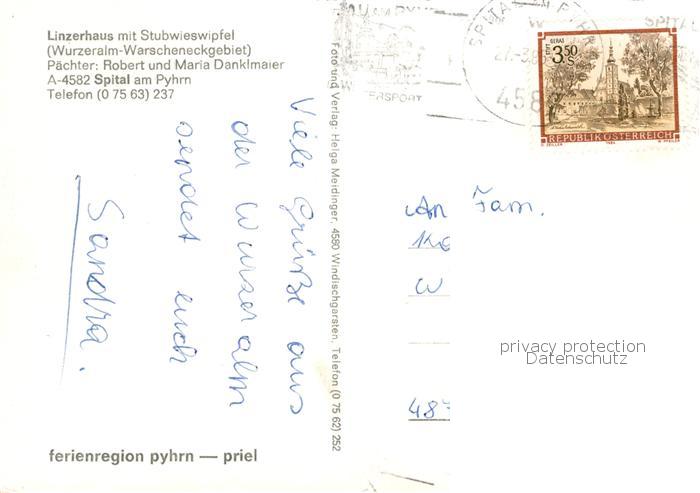 Linzerhaus mit Stubwieswipfel
(Wurzeralm-Warscheneckgebiet)
Pächter: Robert und Maria Danklmaier
A-4582 Spital am Pyhrn
Telefon (0 75 63) 237
Viele Grüße aus
der Wurzeralm
sendet euch
Sandra.
ferienregion pyhrn — priel
Foto und Verlag: Helga Meidinger, 4580 Windischgarsten, Telefon (0 75 62) 252
SPITAL AM PYHRN
458
STIFT GERAS
3.50
S
REPUBLIK ÖSTERREICH
An Fam.
W
48
privacy protection
Datenschutz